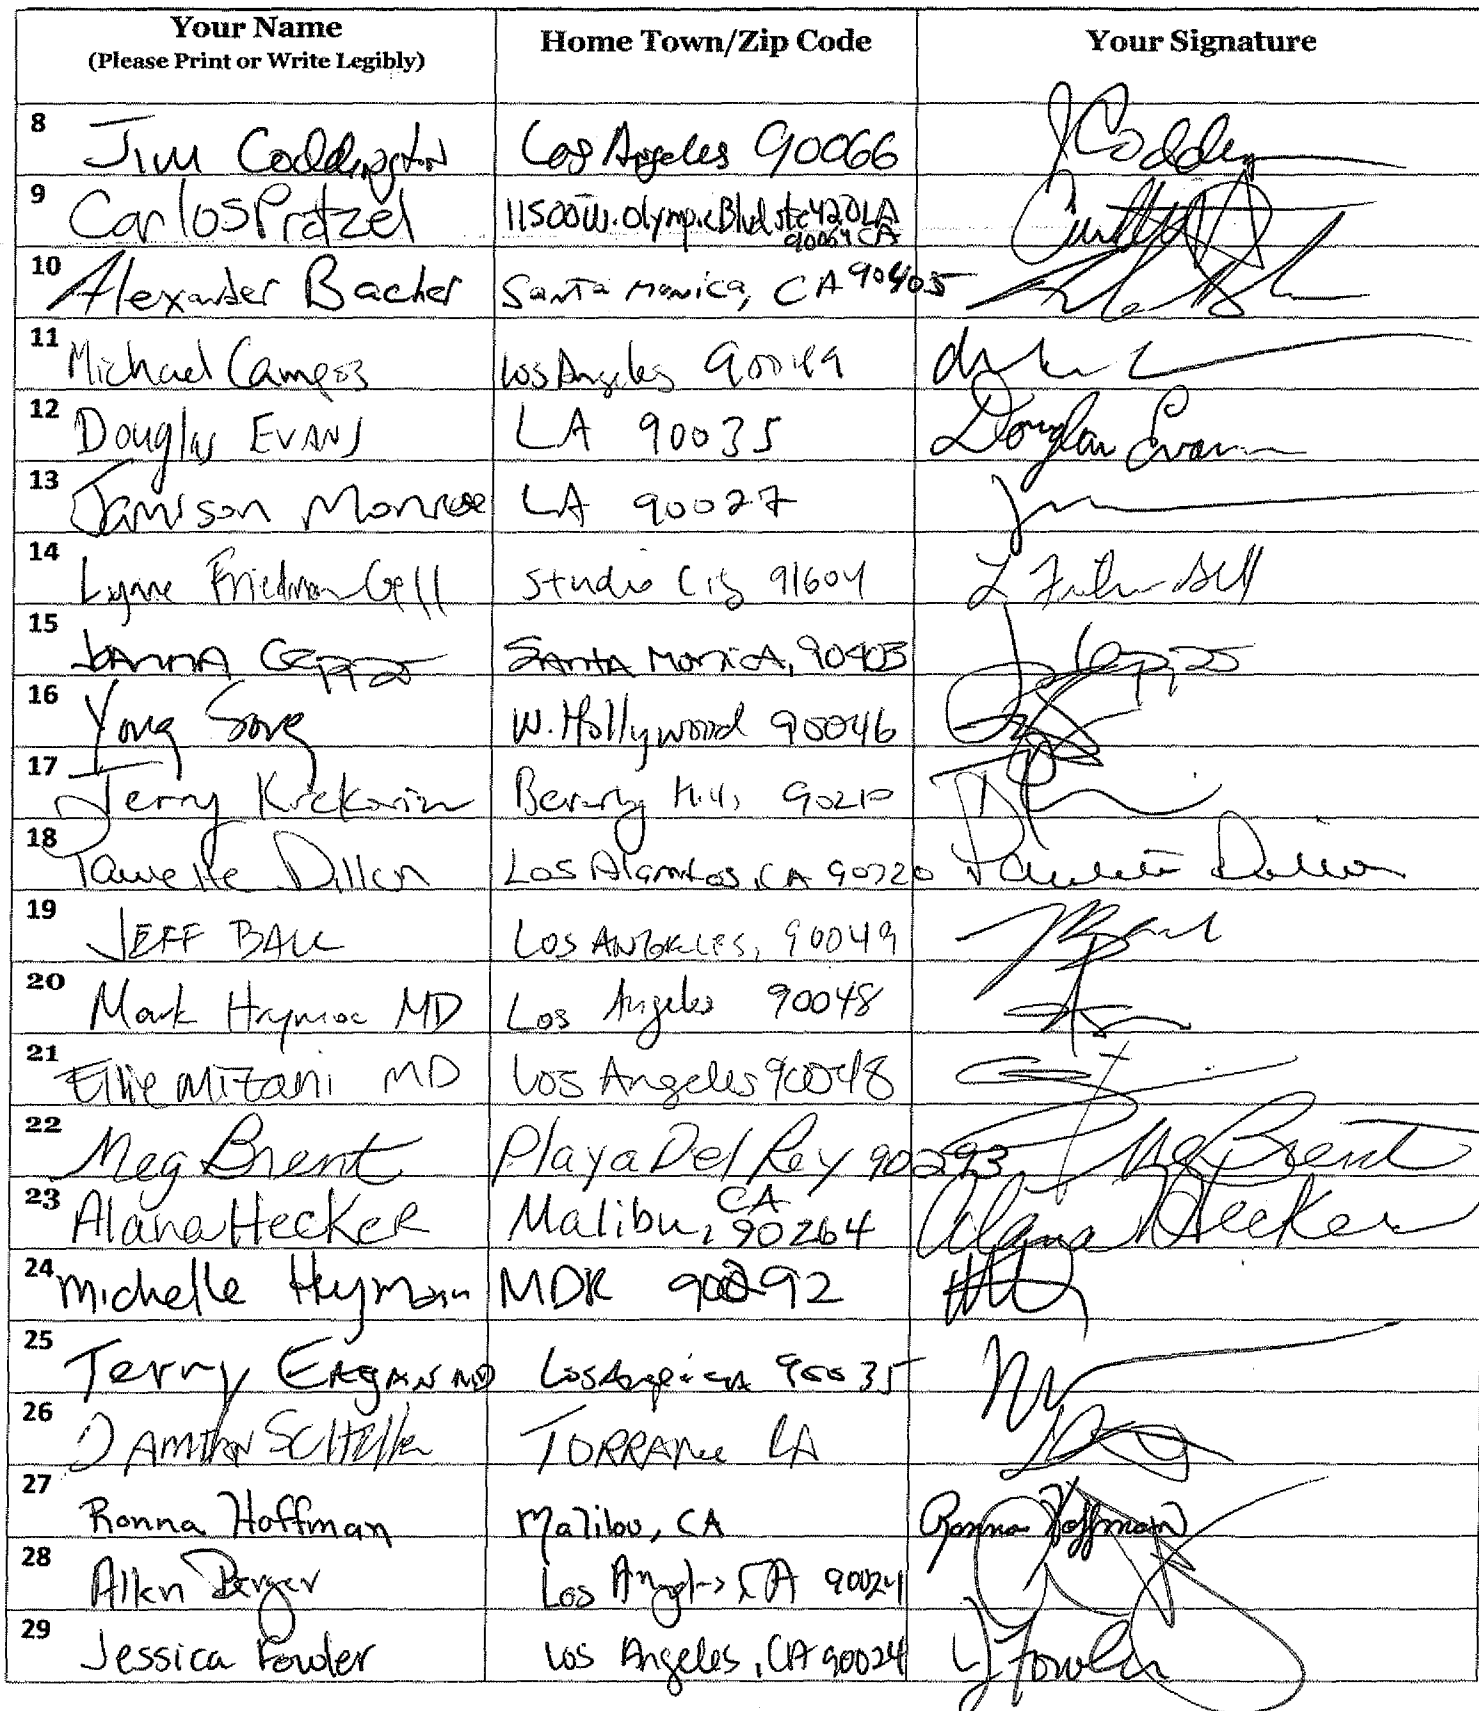 Your Name
(Please Print or Write Legibly)
Home Town/Zip Code
Your Signature
8 Jim Coddington Los Angeles 90066 J Codd
9 Carlos Pratzel 11500 W. Olympic Blvd ste 420 LA
90064 CA
10 Alexander Bacher Santa Monica, CA 90405
11 Michael Campos Los Angeles 90049
12 Douglas EVANS LA 90035 Douglas Evans
13 Jamison Monroe LA 90027
14 Lynne Friedman Gell Studio City 91604
15 Geppzs SANTA MONICA, 90403
16 Yong Song W. Hollywood 90046
17 Jerry Beverly Hills 90210
18 Dillon Los Alamitos, CA 90720
19 JEFF BALL LOS ANGELES, 90049
20 Mark Hrymoc MD Los Angeles 90048
21 Ellie Mizani MD Los Angeles 90048
22 Meg Brent Playa Del Rey 90293 Meg Brent
23 Alana Hecker Malibu, CA
90264 Alana Hecker
24 Michelle Heyman MDR 90292
25 Terry EAGAN MD Los Angeles CA 90035
26 TORRANCE
27 Ronna Hoffman Malibu, CA Ronna Hoffman
28 Allen Berger Los Angeles CA 90024
29 Jessica Fowler Los Angeles, CA 90024 J Fowler